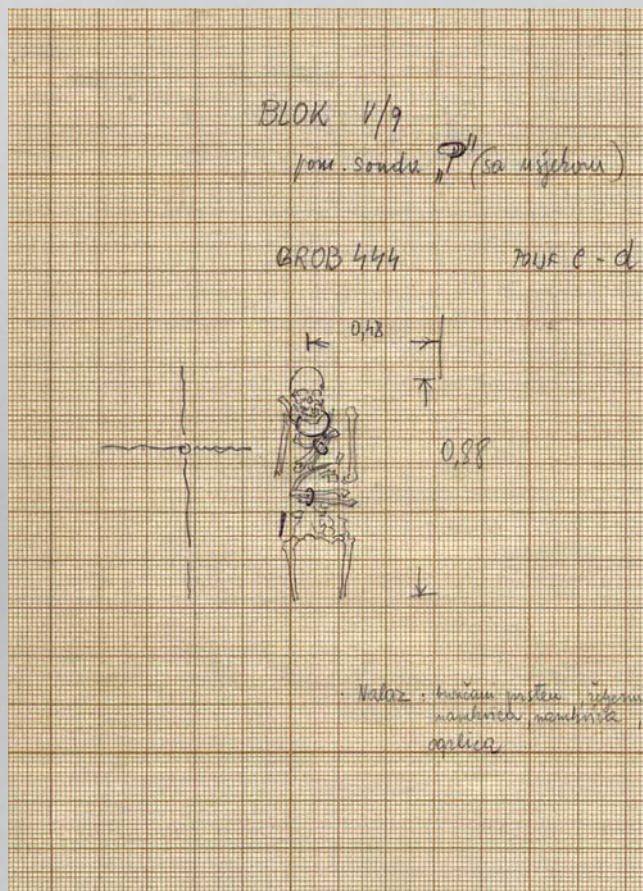 BLOK V/9
pom. sonda "P" (sa usjekom)
GROB 444 POLJE c - d
0,48
0,88
Nalaz: brončani prsten,
narukvica, narukvica,
ogrlica